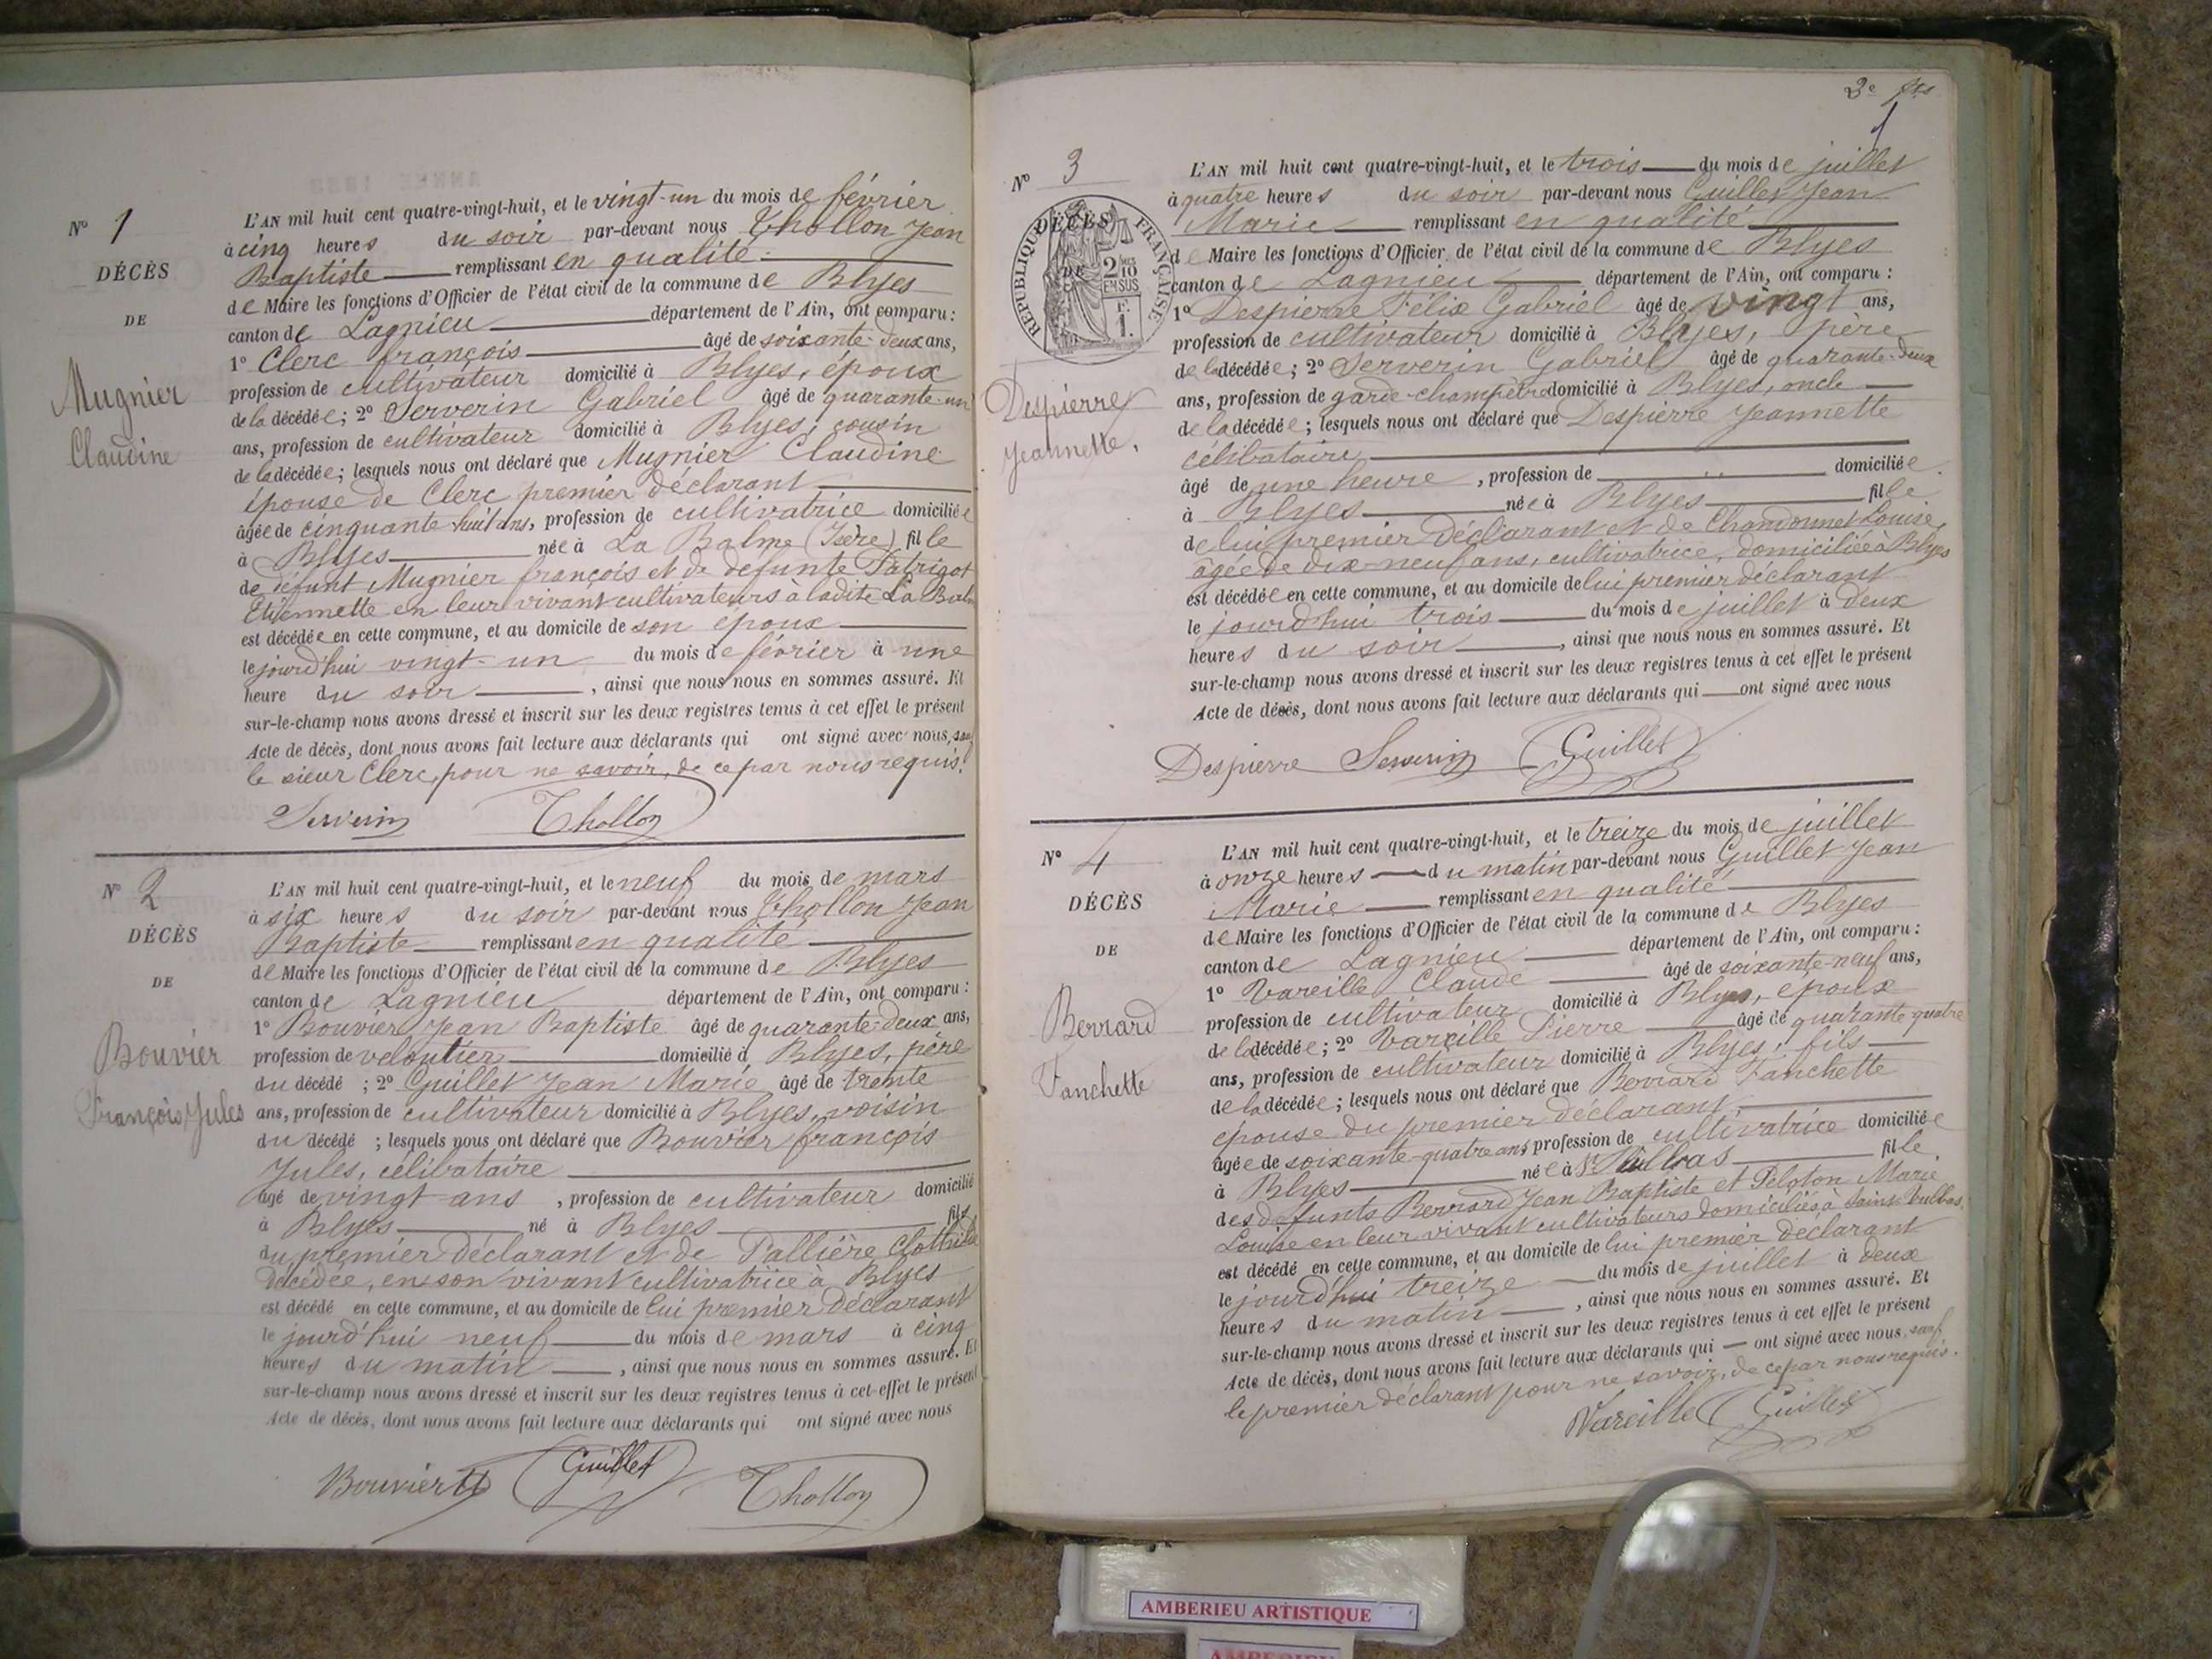 Nº 1
DÉCÈS
DE
Mugnier
Claudine
L'AN mil huit cent quatre-vingt-huit, et le vingt-un du mois de février
à cinq heures du soir par-devant nous Thollon Jean
Baptiste remplissant en qualité
de Maire les fonctions d'Officier de l'état civil de la commune de Blyes
canton de Lagnieu département de l'Ain, ont comparu :
1º Clerc françois âgé de soixante-deux ans,
profession de cultivateur domicilié à Blyes, époux
de la décédée; 2º Serverin Gabriel âgé de quarante-un
ans, profession de cultivateur domicilié à Blyes, cousin
de la décédée; lesquels nous ont déclaré que Mugnier Claudine
épouse de Clerc premier déclarant
âgée de cinquante-huit ans, profession de cultivatrice domiciliée
à Blyes née à La Balme (Isère) fille
de défunt Mugnier françois et de défunte Patrigot
Etiennette en leur vivant cultivateurs à ladite La Balm
est décédée en cette commune, et au domicile de son époux
le jourd'hui vingt-un du mois de février à une
heure du soir, ainsi que nous nous en sommes assuré. Et
sur-le-champ nous avons dressé et inscrit sur les deux registres tenus à cet effet le présent
Acte de décès, dont nous avons fait lecture aux déclarants qui ont signé avec nous, sauf
le sieur Clerc, pour ne savoir, de ce par nous requis.
Serverin Thollon
Nº 2
DÉCÈS
DE
Bouvier
François Jules
L'AN mil huit cent quatre-vingt-huit, et le neuf du mois de mars
à six heures du soir par-devant nous Thollon Jean
Baptiste remplissant en qualité
de Maire les fonctions d'Officier de l'état civil de la commune de Blyes
canton de Lagnieu département de l'Ain, ont comparu :
1º Bouvier Jean Baptiste âgé de quarante-deux ans,
profession de veloutier domicilié à Blyes, père
du décédé ; 2º Guillet Jean Marie âgé de trente
ans, profession de cultivateur domicilié à Blyes, voisin
du décédé ; lesquels nous ont déclaré que Bouvier françois
Jules, célibataire
âgé de vingt ans, profession de cultivateur domicilié
à Blyes né à Blyes fils
du premier déclarant et de Pallière Clothilde
décédée, en son vivant cultivatrice à Blyes
est décédé en cette commune, et au domicile de lui premier déclarant
le jourd'hui neuf du mois de mars à cinq
heures du matin, ainsi que nous nous en sommes assuré. Et
sur-le-champ nous avons dressé et inscrit sur les deux registres tenus à cet effet le présent
Acte de décès, dont nous avons fait lecture aux déclarants qui ont signé avec nous
Bouvier Guillet Thollon
Nº 3
DÉCÈS
DE
RÉPUBLIQUE FRANÇAISE
2/10 EN SUS
F. 1.
Despierre
Jeannette.
L'AN mil huit cent quatre-vingt-huit, et le trois du mois de juillet
à quatre heures du soir par-devant nous Guillet Jean
Marie remplissant en qualité
de Maire les fonctions d'Officier de l'état civil de la commune de Blyes
canton de Lagnieu département de l'Ain, ont comparu :
1º Despierre Félix Gabriel âgé de vingt ans,
profession de cultivateur domicilié à Blyes, père
de la décédée; 2º Serverin Gabriel âgé de quarante-deux
ans, profession de garde-champêtre domicilié à Blyes, oncle
de la décédée; lesquels nous ont déclaré que Despierre Jeannette
célibataire
âgé de une heure, profession de domiciliée
à Blyes née à Blyes fille
de lui premier Déclarant et de Chardonnet Louise,
âgée de dix-neuf ans, cultivatrice, domiciliée à Blyes
est décédée en cette commune, et au domicile de lui premier déclarant
le jourd'hui trois du mois de juillet à deux
heures du soir, ainsi que nous nous en sommes assuré. Et
sur-le-champ nous avons dressé et inscrit sur les deux registres tenus à cet effet le présent
Acte de décès, dont nous avons fait lecture aux déclarants qui ont signé avec nous
Despierre Serverin Guillet
Nº 4
DÉCÈS
DE
Berrard
Fanchette
L'AN mil huit cent quatre-vingt-huit, et le treize du mois de juillet
à onze heures du matin par-devant nous Guillet Jean
Marie remplissant en qualité
de Maire les fonctions d'Officier de l'état civil de la commune de Blyes
canton de Lagnieu département de l'Ain, ont comparu :
1º Vareille Claude âgé de soixante-neuf ans,
profession de cultivateur domicilié à Blyes, époux
de la décédée; 2º Vareille Pierre âgé de quarante quatre
ans, profession de cultivateur domicilié à Blyes, fils
de la décédée; lesquels nous ont déclaré que Berrard Fanchette
épouse du premier déclarant,
âgée de soixante-quatre ans, profession de cultivatrice domiciliée
à Blyes née à St Vulbas fille
des défunts Berrard Jean Baptiste et Peloton Marie
Louise en leur vivant cultivateurs domiciliés à Saint Vulbas,
est décédé en cette commune, et au domicile de lui premier déclarant
le jourd'hui treize du mois de juillet à deux
heures du matin, ainsi que nous nous en sommes assuré. Et
sur-le-champ nous avons dressé et inscrit sur les deux registres tenus à cet effet le présent
Acte de décès, dont nous avons fait lecture aux déclarants qui ont signé avec nous, sauf
le premier déclarant pour ne savoir, de ce par nous requis.
Vareille Guillet
AMBERIEU ARTISTIQUE
AMBERIEU